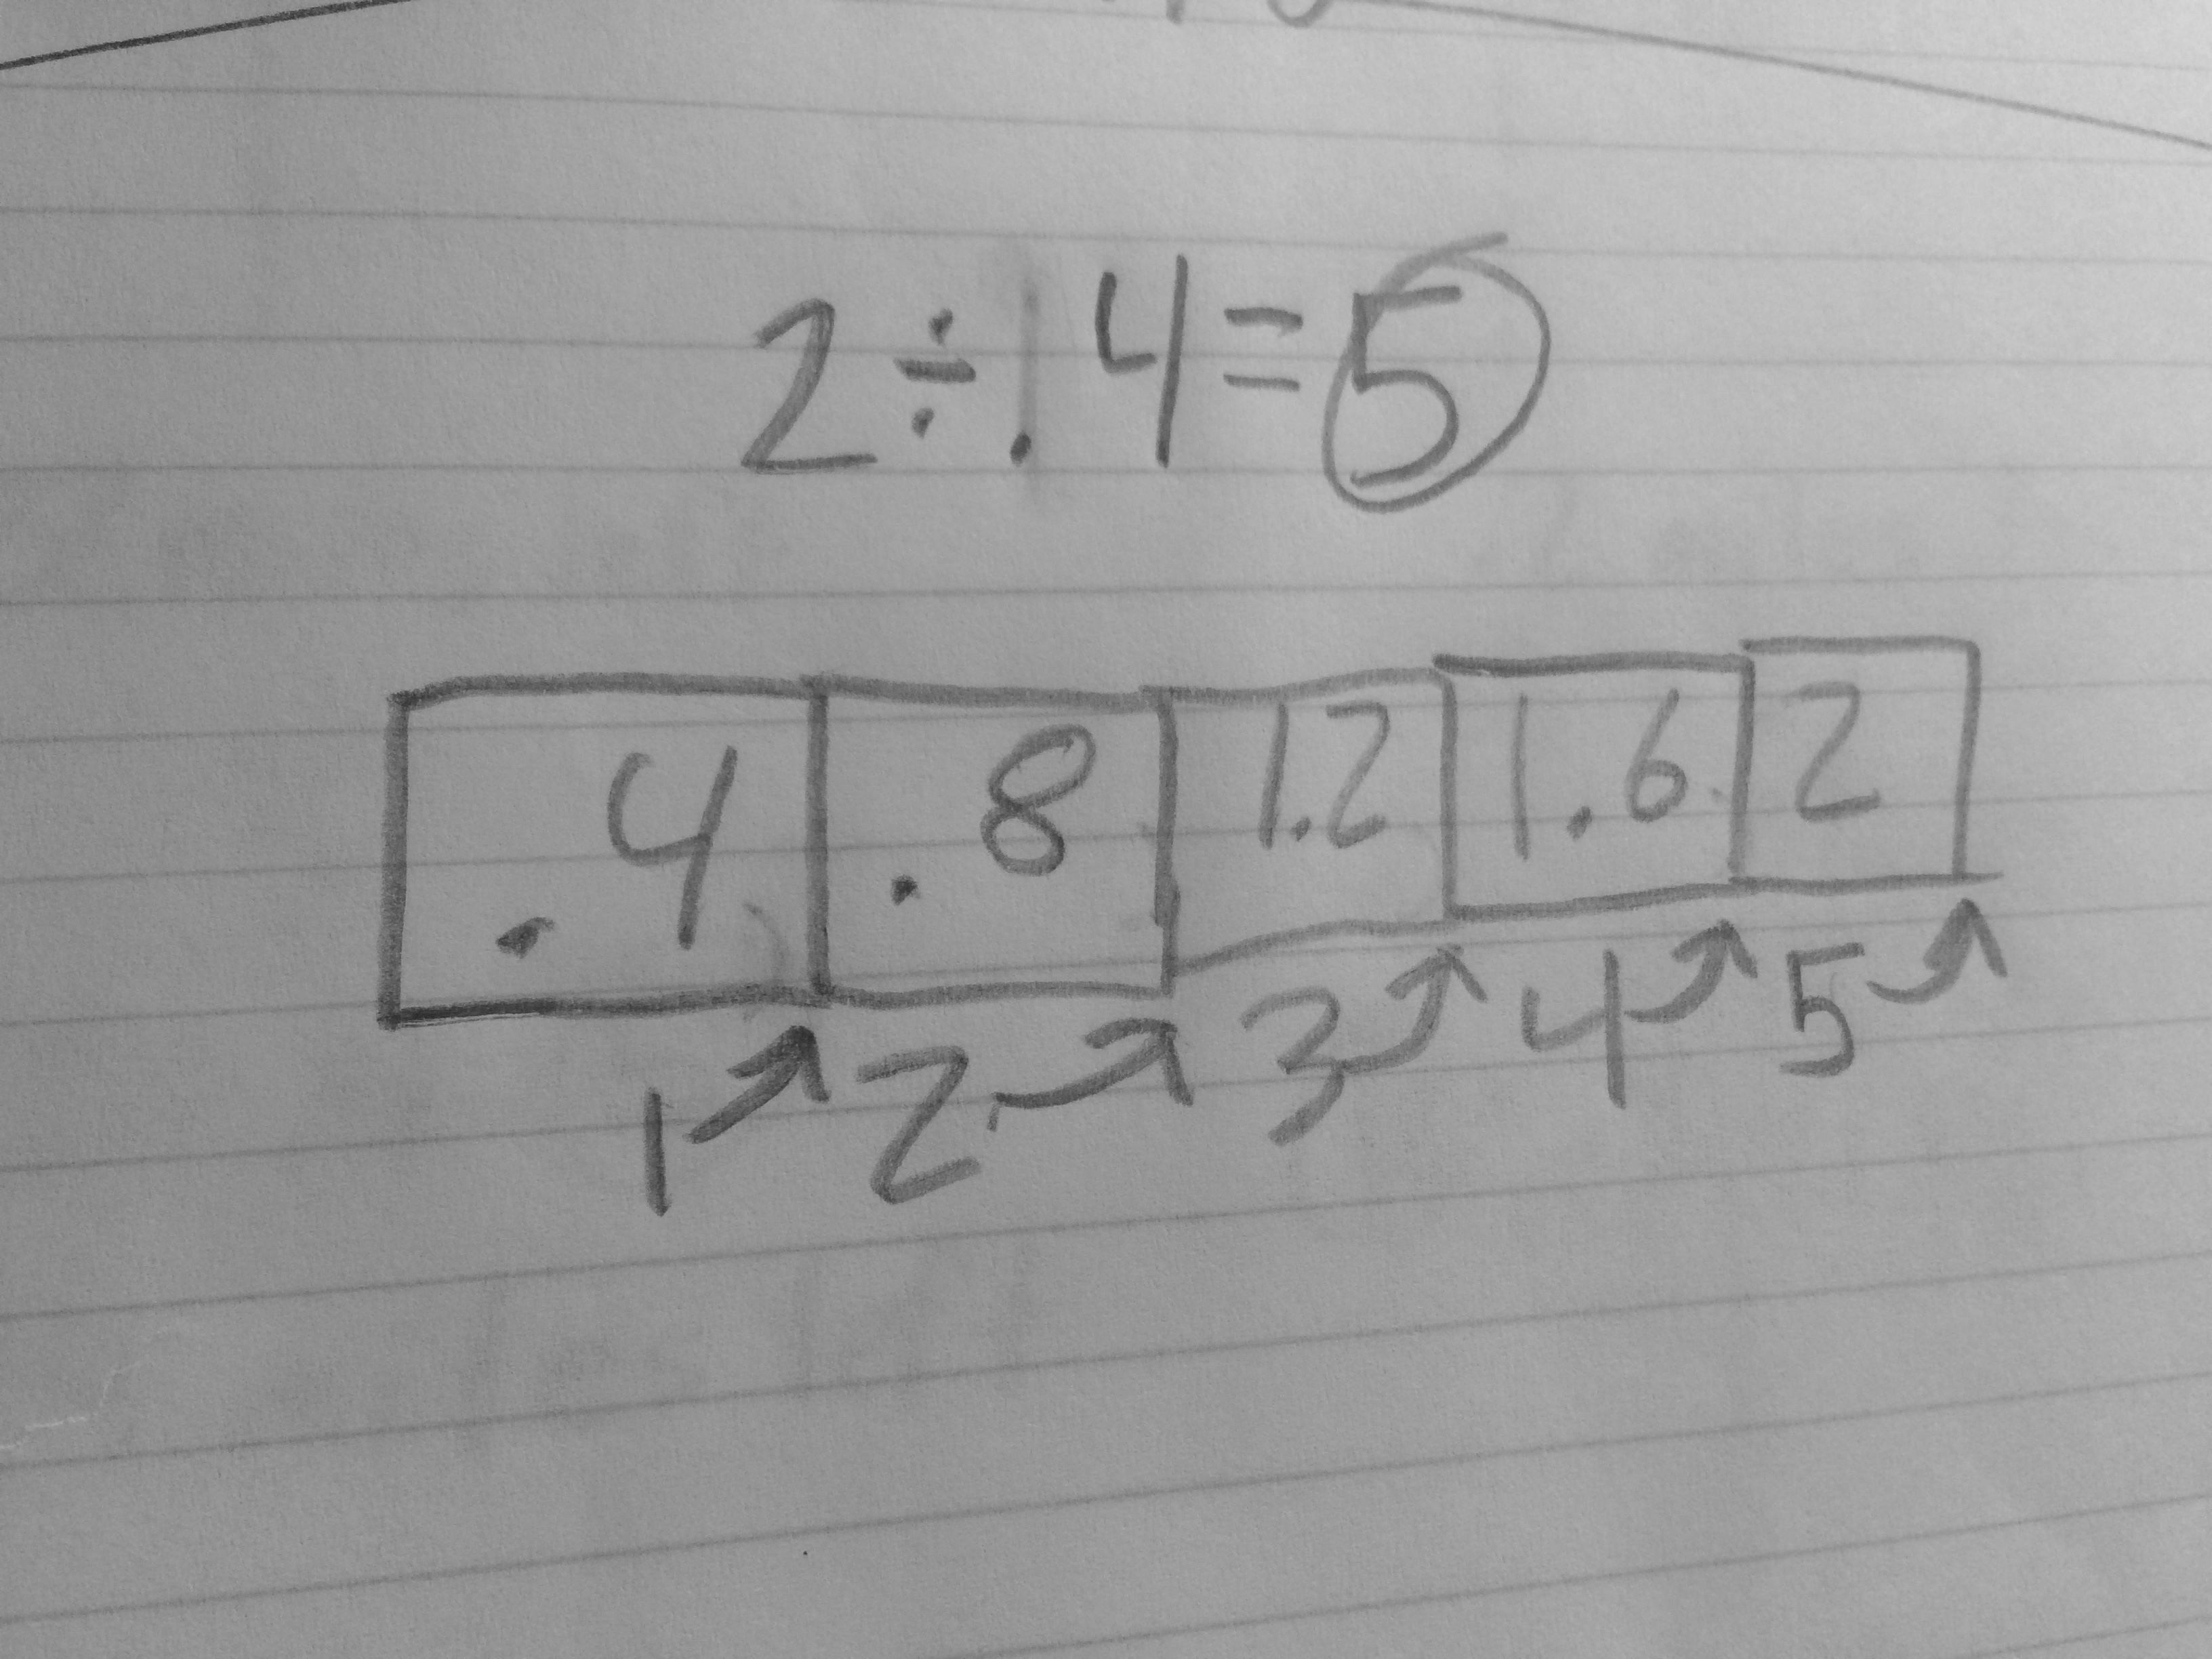 2 ÷ .4 = 5
.4 .8 1.2 1.6 2
1 2 3 4 5